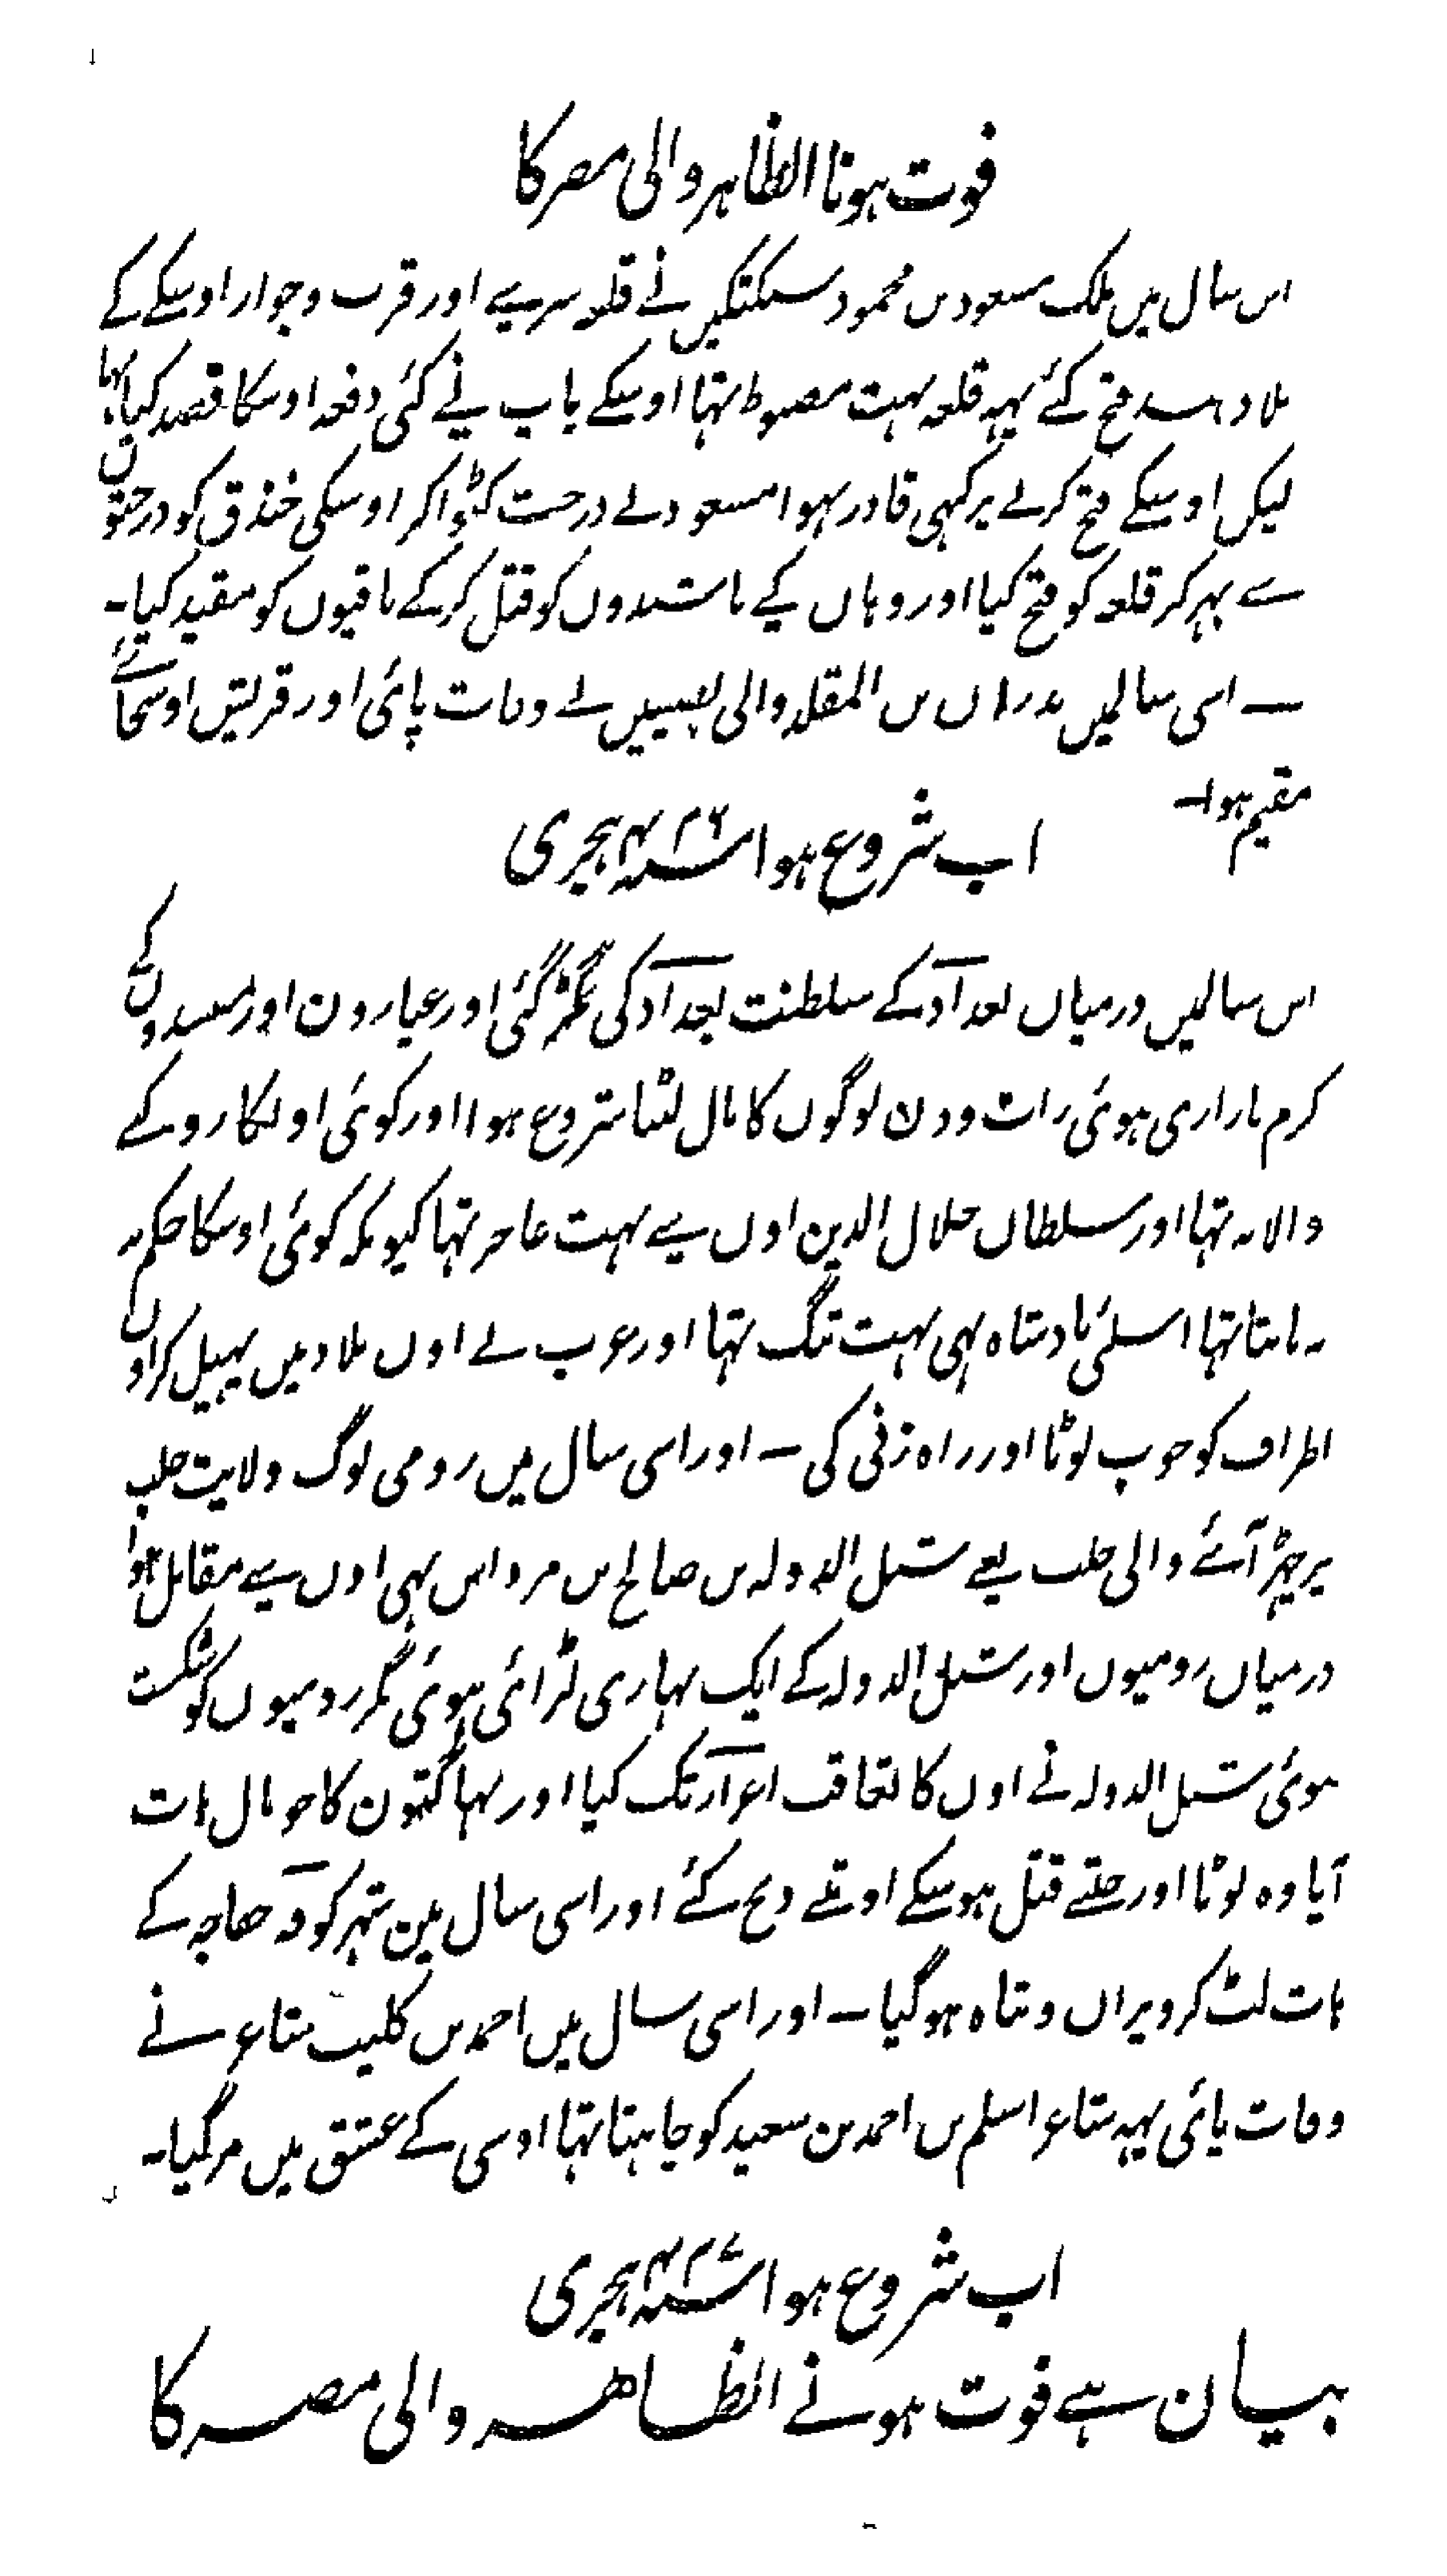 فوت ہونا الظاہر والی مصر کا
اس سال میں ملک مسعود بن محمود سبکتگین نے قلعہ سرسے اور قرب و جوار اوسکے کے
بلاد ہند فتح کئے یہہ قلعہ بہت مضبوط تہا اوسکے باپ نے کئی دفعہ اوسکا قصد کیا تہا
لیکن اوسکے فتح کرنے پر کبہی قادر نہوا مسعود نے درخت کٹوا کر اوسکی خندق کو درختوں
سے بہر کر قلعہ کو فتح کیا اور وہاں کے باشندوں کو قتل کرکے باقیوں کو مقید کیا۔
۔ اسی سالمیں بدران بن المقلد والی نصیبین نے وفات پائی اور قریش اوسجائے
مقیم ہوا۔
اب شروع ہوا سنہ ۴۲۶ ہجری
اس سالمیں درمیان بغداد کے سلطنت بغداد کی بگڑ گئی اور عیارون اور مفسدوں کے
گرم بازاری ہوئی رات و دن لوگوں کا مال لٹنا شروع ہوا اور کوئی اونکا روکے
والا نہ تہا اور سلطان جلال الدین اون سے بہت عاجز تہا کیونکہ کوئی اوسکا حکم نہ
نہ مانتا تہا اسلئی بادشاہ بہی بہت تنگ تہا اور عرب نے اون بلاد میں پہیل کر اون
اطراف کو خوب لوٹا اور راہ زنی کی ۔ اور اسی سال میں رومی لوگ ولایت حلب
پر چڑہ آئے والی حلب یعے شبل الدولہ بن صالح بن مرداس بہی اون سے مقابل ہوا
درمیان رومیوں اور شبل الدولہ کے ایک بہاری لڑائی ہوئی مگر رومیوں کو شکست
ہوئی شبل الدولہ نے اون کا تعاقب اعزاز تک کیا اور بہاگتون کا جو مال ہات
آیا وہ لوٹا اور جتنے قتل ہوسکے اوتنے ذبح کئے اور اسی سال مین شہر کوفہ خفاجہ کے
ہات لٹ کر ویران و تباہ ہوگیا ۔ اور اسی سال میں احمد بن کلیب شاعر نے
وفات پائی یہہ شاعر اسلم بن احمد بن سعید کو چاہتا تہا اوسی کے عشق میں مرگیا۔
اب شروع ہوا سنہ ۴۲۷ ہجری
بیان ہے فوت ہونے الظاہر والی مصر کا